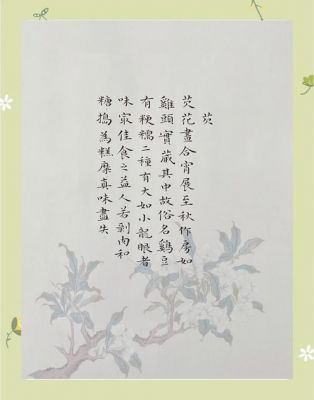 芡
芡花晝合宵展至秋作房如
雞頭實藏其中故俗名鷄豆
有粳糯二種有大如小龍眼者
味㝡佳食之益人若剝肉和
糖搗為糕糜真味盡失